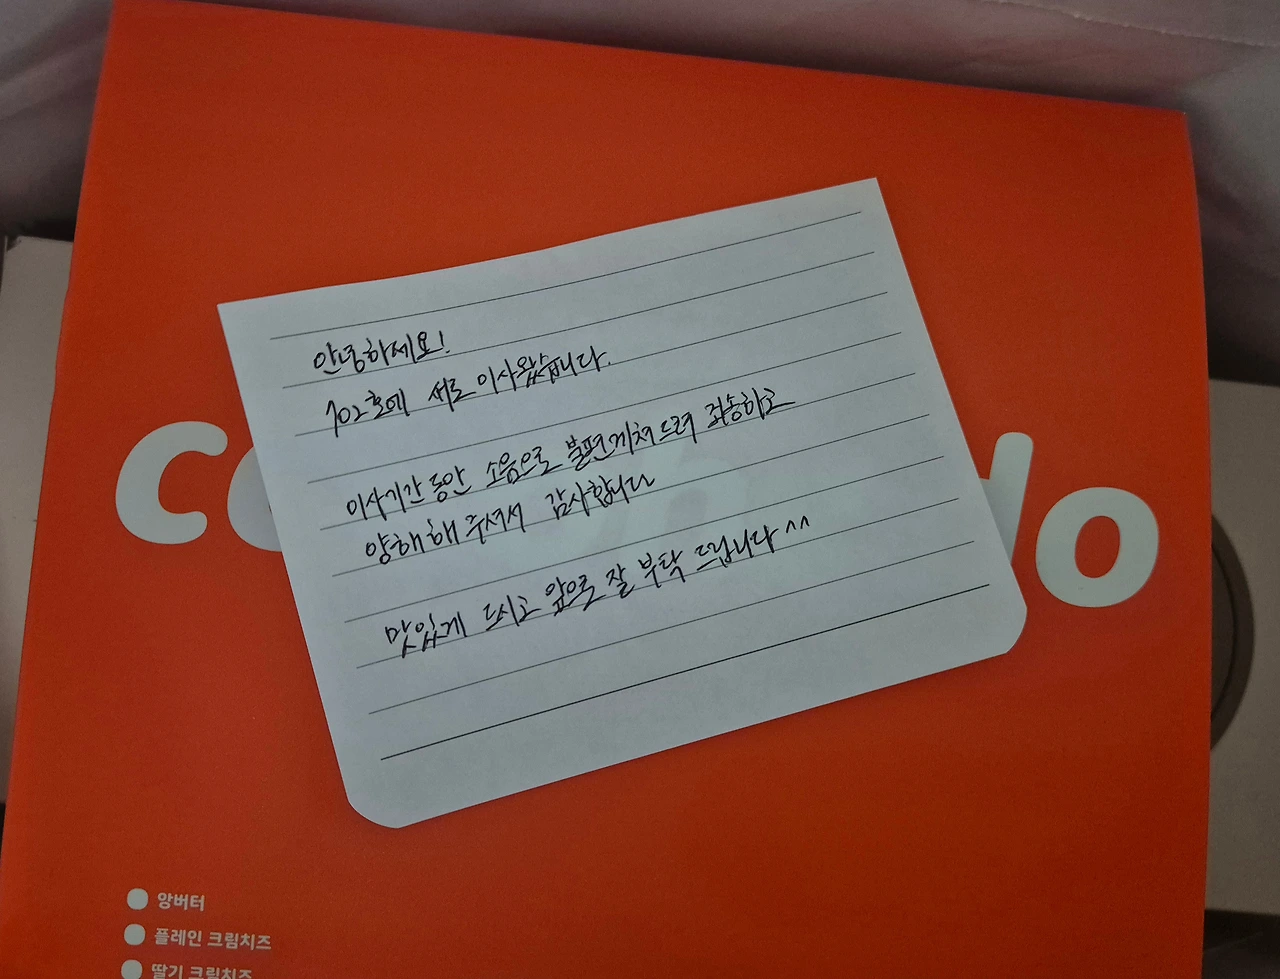 안녕하세요!
102호에 새로 이사왔습니다.
이사기간 동안 소음으로 불편 끼쳐 드려 죄송하고
양해해 주셔서 감사합니다
맛있게 드시고 앞으로 잘 부탁 드립니다 ^^
do
앙버터
플레인 크림치즈
딸기 크림치즈